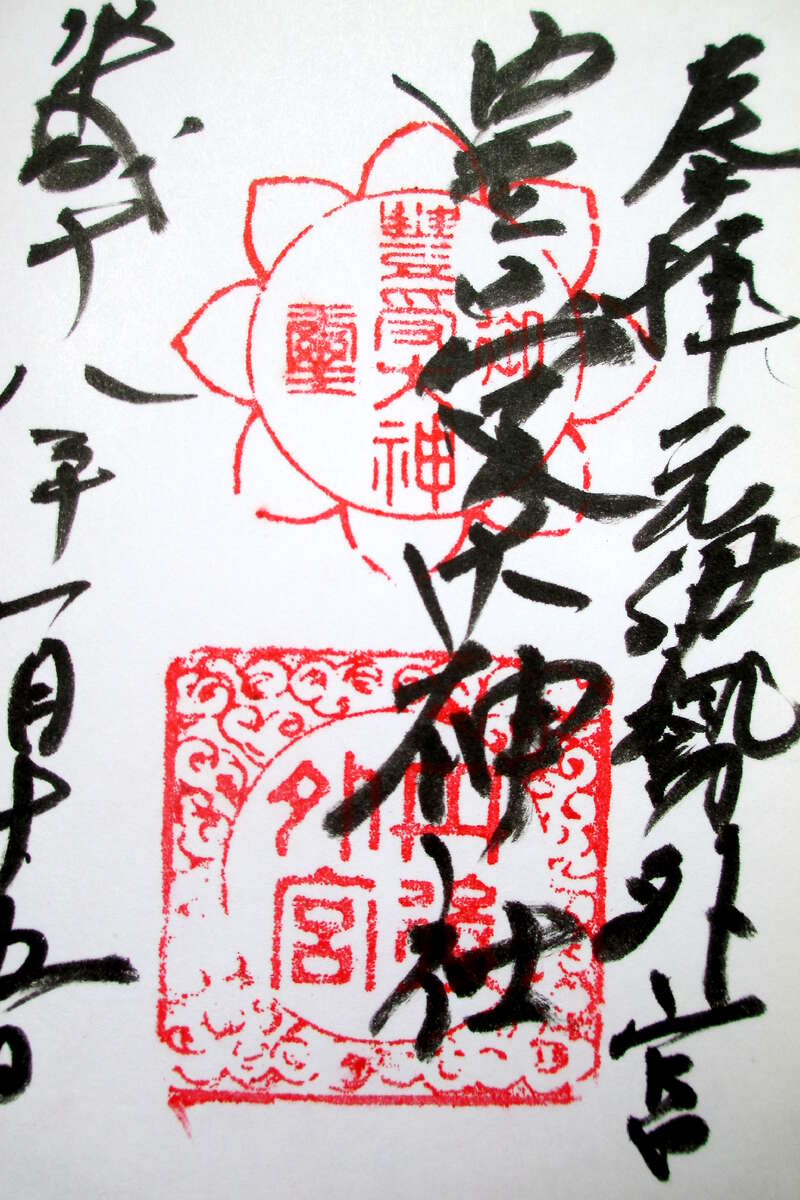 奉拝 元伊勢外宮
豊受大神社
平成十八年一月十五日
御
豐受大神
靈
外宮